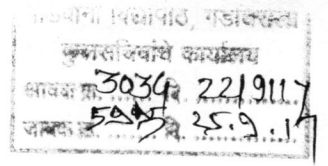 विद्यापीठ, गडचिरोली
कुलसचिवांचे कार्यालय
आवक क्र. 3034 दि. 22/9/17
जावक क्र. दि. 25.9.17